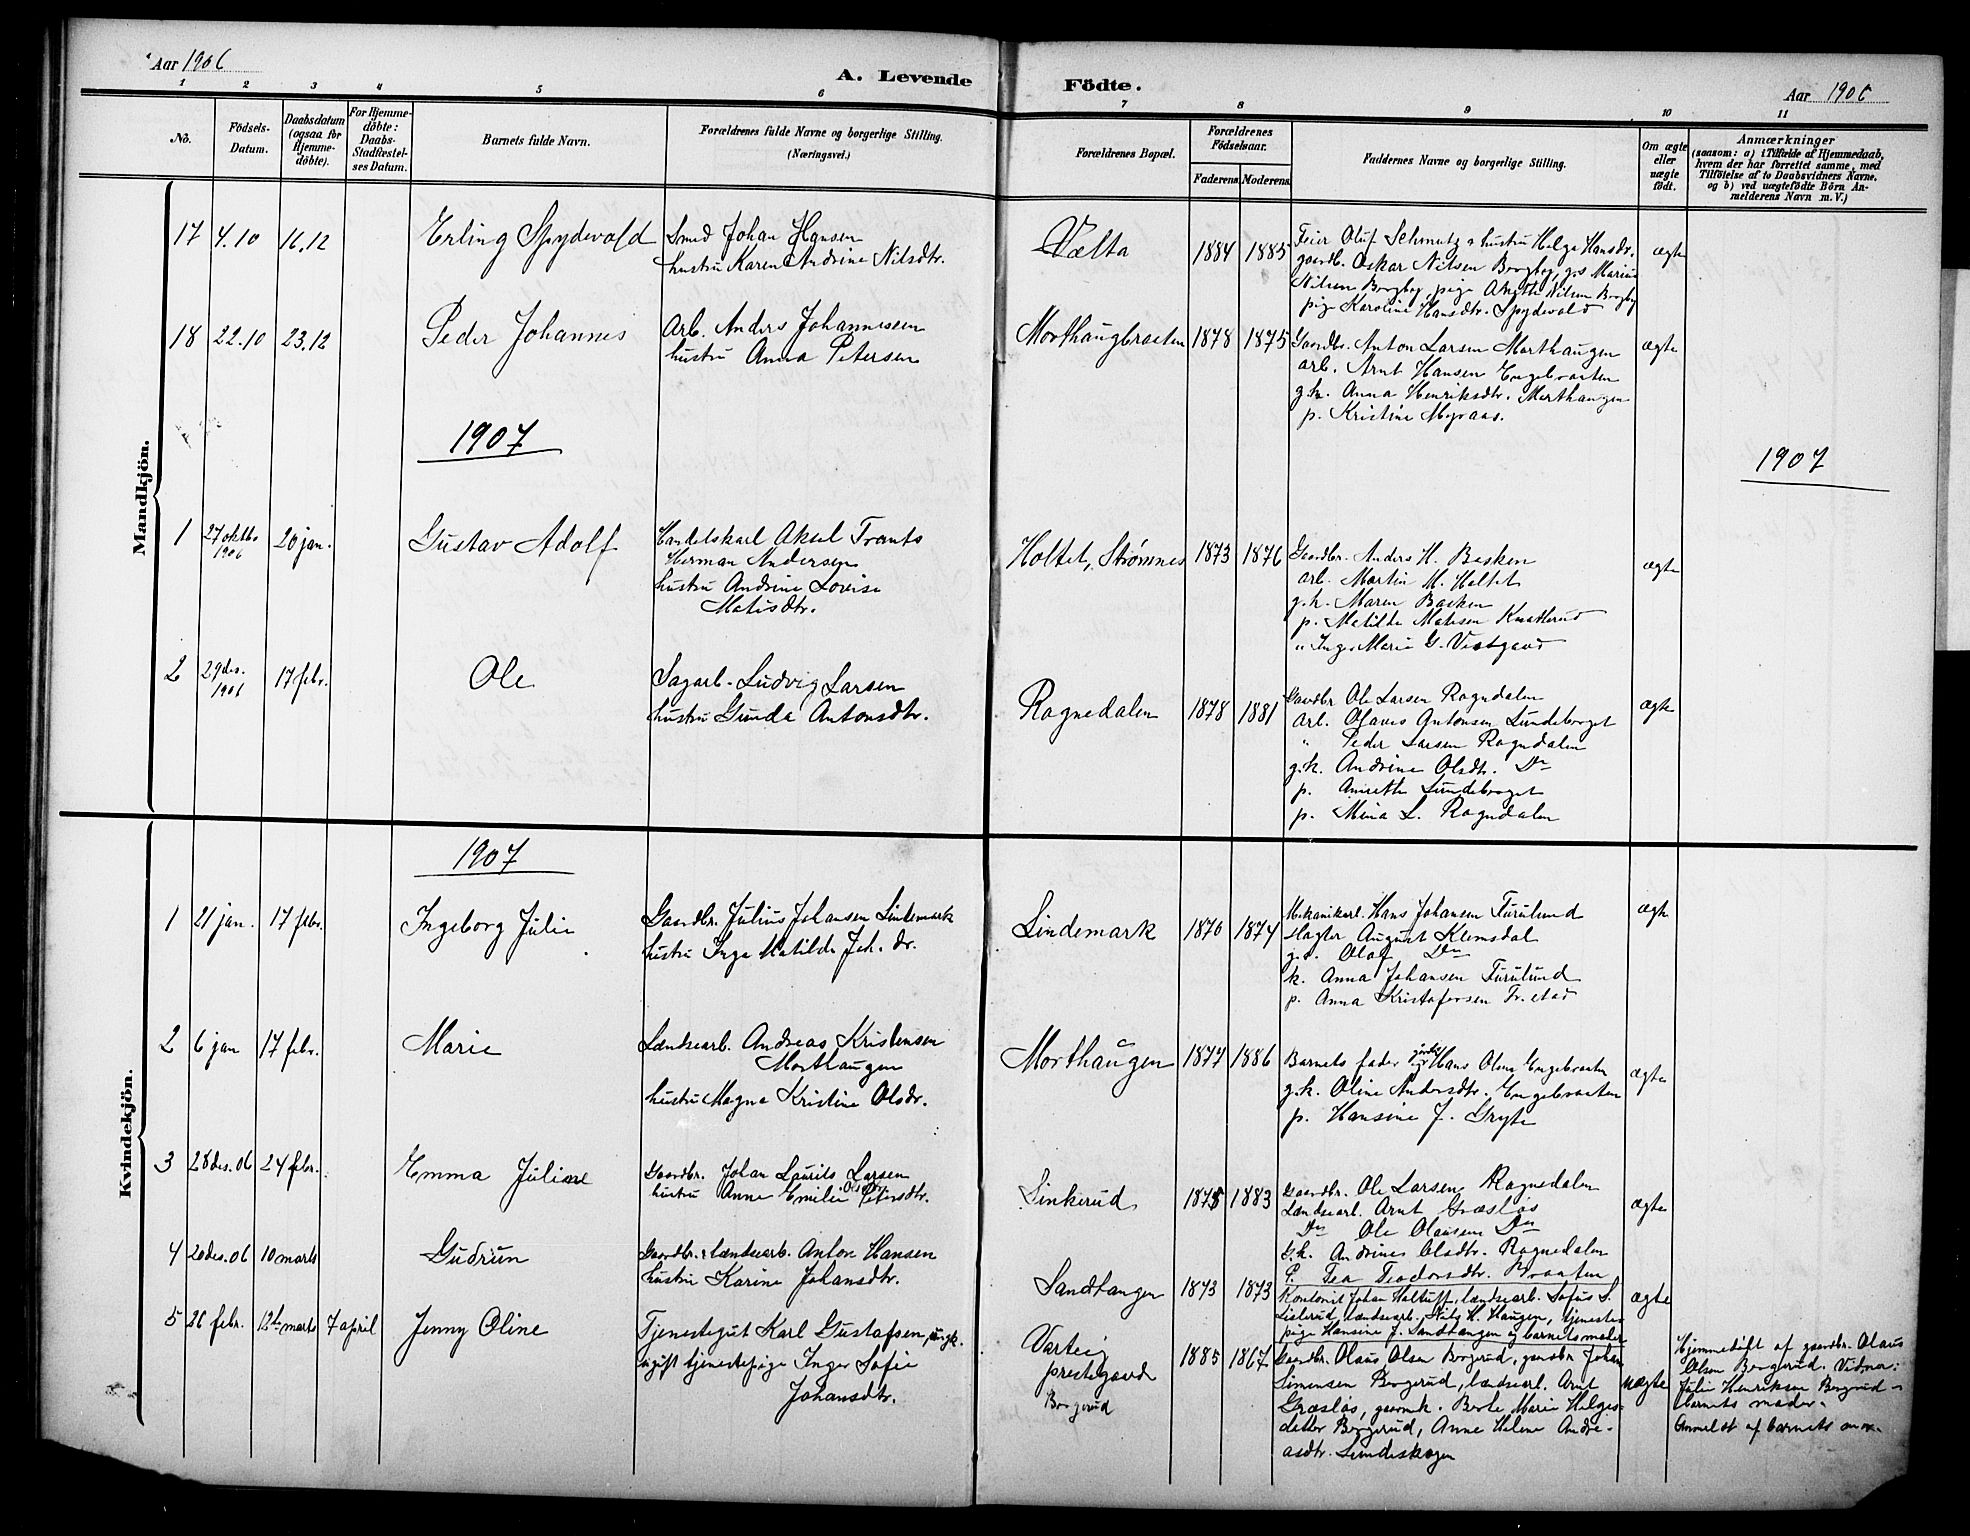 Aar 1906
A. Levende
Födte.
Aar 1906
1 2 3 4 5 6 7 8 9 10 11
No.
Födsels-
Datum.
Daabsdatum
(ogsaa for
Hjemme-
döbte).
For Hjemme-
döbte:
Daabs-
Stadfæstel-
ses Datum.
Barnets fulde Navn.
Forældrenes fulde Navne og borgerlige Stilling.
(Næringsvei.)
Forældrenes Bopæl.
Forældrenes
Födselsaar.
Faderens. Moderens.
Faddernes Navne og borgerlige Stilling.
Om ægte
eller
uægte
födt.
Anmærkninger
(saasom: a) i Tilfælde af Hjemmedaab,
hvem der har forrettet samme, med
Tilföielse af to Daabsvidners Navne,
og b) ved uægtefödte Börn An-
melderens Navn m. V.)
Mandkjön.
17 4.10 16.12 Erling Spydevold
Smed Johan Hansen
hustru Karen Andrine Nilsdtr.
Vælta
1884 1885
Feier Oluf Schmutz & hustru Helga Hansdr.
gaardb. Oskar Nilsen Borgby, gs Marius
Nilsen Borgby, pige Nilsen Borgby
pige Karoline Hansdtr. Spydevold
ægte
18 22.10 23.12 Peder Johannes
Arb. Anders Johannessen
hustru Anna Petersen
Morthaugbraaten
1878 1875
Gaardbr. Anton Larsen Morthaugen
arb. Arnt Hansen Engebraaten
g.k. Anna Henriksdtr. Morthaugen
p. Kristine Myraas.
ægte
1907
1907
1 27 oktbr 1906 20 jan. Gustav Adolf
Handelskarl Aksel Frants
Herman Andersen
hustru Andrine Lovise
Matisdtr.
Holtet, Strømnes
1873 1876
Gaardbr. Anders H. Bakken
arb. Martin M. Holtet
g.k. Maren Bakken
p. Matilde Matisen Knatterud
" Inger Marie G. Vestgaard
ægte
2 29 des. 1906 17 febr. Ole
Sagarb. Ludvig Larsen
hustru Gunda Antonsdtr.
Ragnedalen
1878 1881
Gaardbr Ole Larsen Ragndalen
Arl. Olaves Antonsen Lundeborget
" Peder Larsen Ragndalen
g.k. Andrine Olsdtr. Do
p. Annette Lundeborget
p. Mina L. Ragndalen
ægte
Kvindekjön.
1907
1 21 jan. 17 febr. Ingeborg Julie
Gaardbr. Julius Johansen Lindemark
hustru Inga Matilde Joh. dr.
Lindemark
1870 1874
Mekanikerl. Hans Johansen Furulund
slagter August Klemsdal
g.s. Olaf Do
k. Anna Johansen Furulund
p. Anna Kristofersen Fr.stad
ægte
2 6 jan 17 febr. Marie
Lændsearb. Andreas Kristensen
Morthaugen
hustru Magna Kristine Olsdr.
Morthaugen
1877 1886
Barnets fader Hans Olsen Engebraaten
g.k. Oline Andersdtr. Engebraaten
p. Hansine J. Gryte
ægte
3 28 des. 06 24 febr. Emma Juliane
Gaardbr. Johan Laurits Larsen
hustru Anne Emilie Petersdtr.
Linkerud
1875 1883
Gaardbr. Ole Larsen Ragnedalen
Lændsearl. Arnt Græsløs
Do Ole Olausen Do
G.k. Andrine Olsdtr. Ragnedalen
P. Tea Teodorsdtr. Braaten
ægte
4 20 des. 06 10 marts Gudrun
Gaardbr. & lændsearb. Anton Hansen
hustru Karine Johansdtr.
Sandtangen
1873 1873
Kontorist Johan Holtuff, lændsearb. Sofus S.
Lislerud, lændsearb. Nils H. Haugen, tjeneste-
pige Hansine J. Sandtangen og barnets moder
ægte
5 26 febr. 12te marts 7 april Jenny Oline
Tjenestegut Karl Gustafsen, ungk.
ugift tjenestepige Inger Sofie
Johansdtr.
Varteig
prestegaard
Borgerud
1885 1867
Gaardbr. Olaus Olsen Borgerud, gaardbr Johan
Simensen Borgerud, lændsearl. Arnt
Græsløs, gaardk. Berte Marie Helges-
datter Borgerud, Anne Helene Andre-
asdtr. Lundeskogen
uægte
Hjemmedøbt af gaardbr. Olaus
Olsen Borgerud. Vidner:
Julie Henriksen Borgerud &
barnets moder.
Anmeldt af barnets